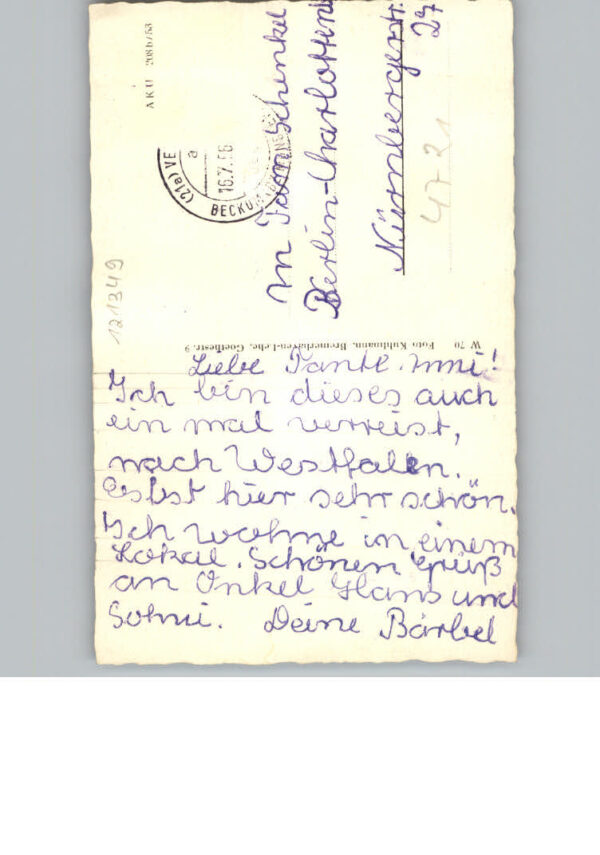 Liebe Tante Mimi!
Ich bin dieses auch
ein mal verreist,
nach Westfalen.
Es ist hier sehr schön.
Ich wohne in einem
Lokal. Schönen Grüß
an Onkel Hans und
Deine Bärbel
Schenkel
Berlin-Charlottenb
Nürnbergerstr.
27
4721
(21a)
a
16.7.56
BECKUM
AKU 208b/53
121349
W 70 Foto Kuhlmann, Bremerhaven-Lehe, Goethestr. 9